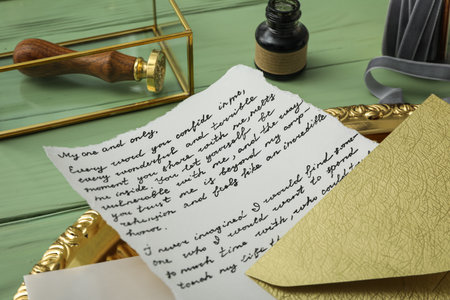 My one and only,
Every word you confide in me,
every wonderful and terrible
moment you share with me melts
me inside. You let yourself be
vulnerable with me, and the way
you trust me is beyond my comp
rehension and feels like an incredible
honor.
I never imagined I would find some
one who I would want to spend
so much time with, who could
touch my life